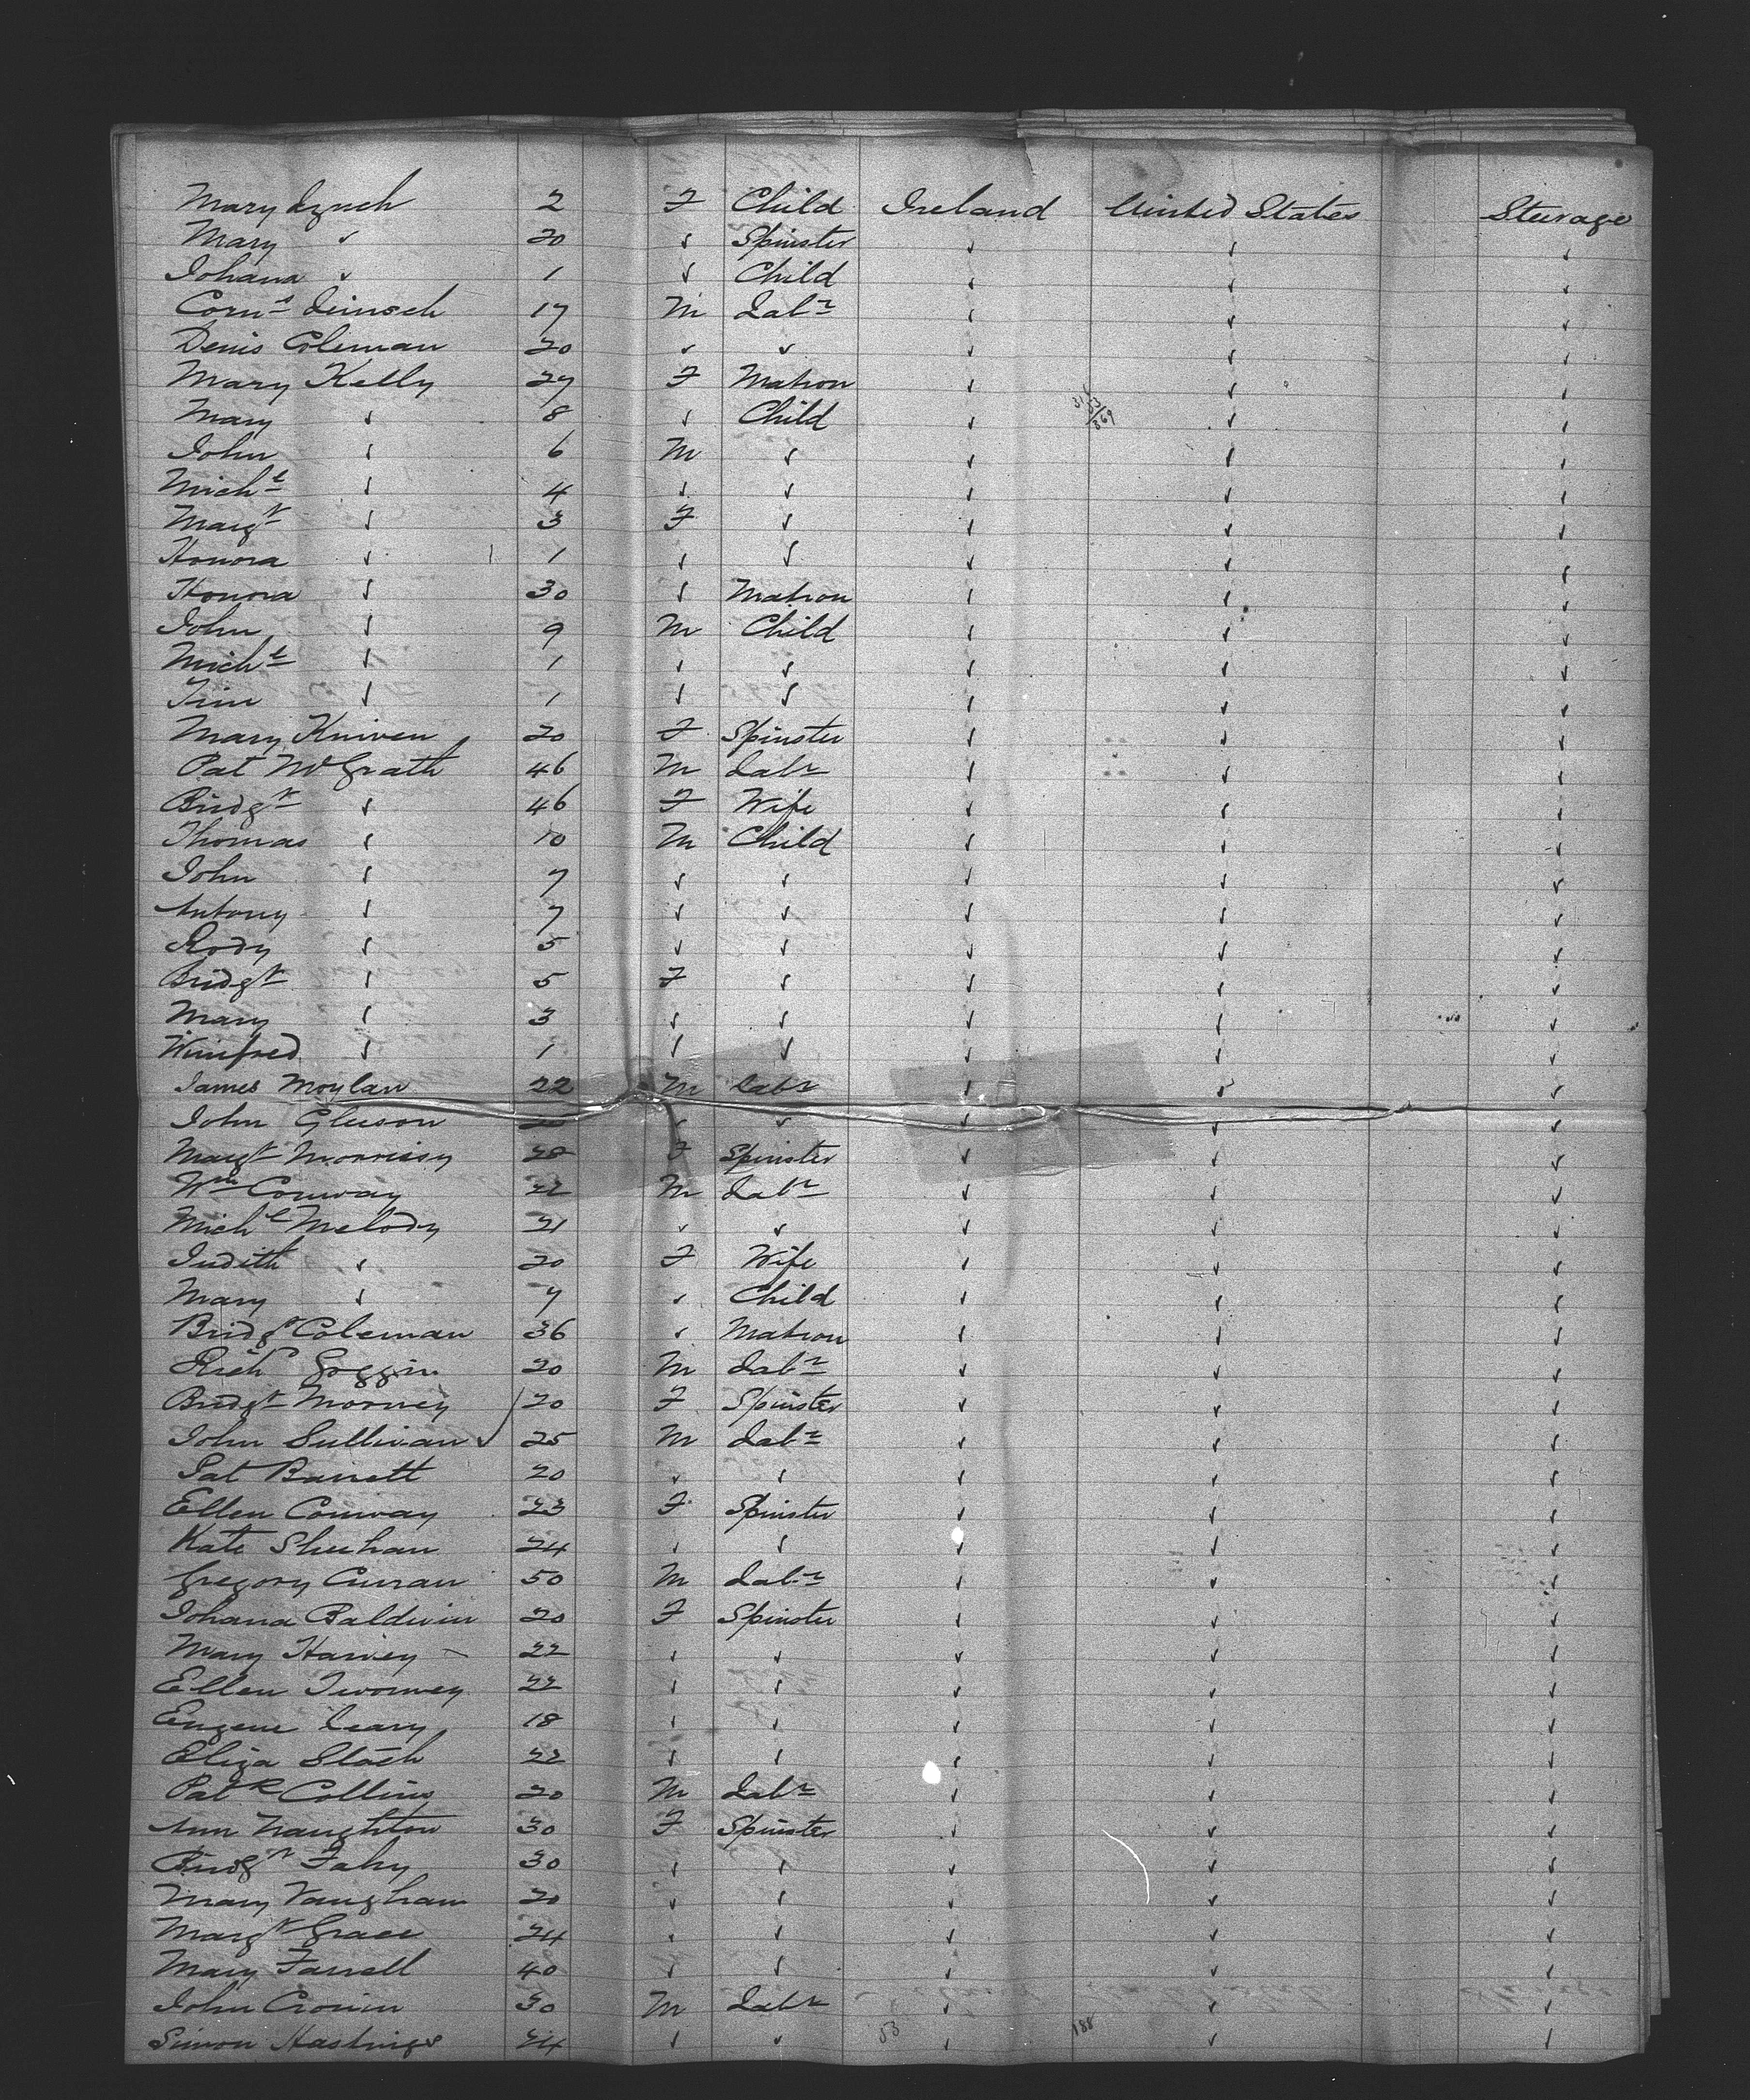 Mary Lynch 2 F Child Ireland United States Steerage
Mary ✓ 20 ✓ Spinster ✓ ✓ ✓
Johana ✓ 1 ✓ Child ✓ ✓ ✓
Corns 17 M Labr ✓ ✓ ✓
Denis Coleman 20 ✓ ✓ ✓ ✓ ✓
Mary Kelly 27 F Matron ✓ ✓ ✓
Mary ✓ 8 ✓ Child ✓ ✓ ✓
John ✓ 6 M ✓ ✓ ✓ ✓
Michl ✓ 4 ✓ ✓ ✓ ✓ ✓
Margt ✓ 3 F ✓ ✓ ✓ ✓
Honora ✓ 1 ✓ ✓ ✓ ✓ ✓
Honora ✓ 30 ✓ Matron ✓ ✓ ✓
John ✓ 9 M Child ✓ ✓ ✓
Michl ✓ 1 ✓ ✓ ✓ ✓ ✓
Tim ✓ 1 ✓ ✓ ✓ ✓ ✓
Mary Kniven 20 F Spinster ✓ ✓ ✓
Pat McGrath 46 M Labr ✓ ✓ ✓
Bridgt ✓ 46 F Wife ✓ ✓ ✓
Thomas ✓ 10 M Child ✓ ✓ ✓
John ✓ 7 ✓ ✓ ✓ ✓ ✓
Antony ✓ 7 ✓ ✓ ✓ ✓ ✓
Rody ✓ 5 ✓ ✓ ✓ ✓ ✓
Bridgt ✓ 5 F ✓ ✓ ✓ ✓
Mary ✓ 3 ✓ ✓ ✓ ✓ ✓
Winifred ✓ 1 ✓ ✓ ✓ ✓ ✓
James Moylan 22 M Labr ✓ ✓ ✓
John Gleeson ✓ ✓ ✓ ✓ ✓
Margt Morrissy 28 F Spinster ✓ ✓ ✓
Wm Conway 22 M Labr ✓ ✓ ✓
Michl Melody 21 ✓ ✓ ✓ ✓ ✓
Judith ✓ 20 F Wife ✓ ✓ ✓
Mary ✓ 7 ✓ Child ✓ ✓ ✓
Bridgt Coleman 36 ✓ Matron ✓ ✓ ✓
Richd Goggin 20 M Labr ✓ ✓ ✓
Bridgt Morney 20 F Spinster ✓ ✓ ✓
John Sullivan ✓ 25 M Labr ✓ ✓ ✓
Pat Barrett 20 ✓ ✓ ✓ ✓ ✓
Ellen Conway 23 F Spinster ✓ ✓ ✓
Kate Sheehan 24 ✓ ✓ ✓ ✓ ✓
Gregory Curran 50 M Labr ✓ ✓ ✓
Johana Baldwin 20 F Spinster ✓ ✓ ✓
Mary Harvey 22 ✓ ✓ ✓ ✓ ✓
Ellen Twomey 22 ✓ ✓ ✓ ✓ ✓
Eugene Leary 18 ✓ ✓ ✓ ✓ ✓
Eliza Stack 22 ✓ ✓ ✓ ✓ ✓
Patk Collins 20 M Labr ✓ ✓ ✓
Ann Naughton 30 F Spinster ✓ ✓ ✓
Bridgt Fahy 30 ✓ ✓ ✓ ✓ ✓
Mary Vaughan 20 ✓ ✓ ✓ ✓ ✓
Margt Grace 24 ✓ ✓ ✓ ✓ ✓
Mary Farrell 40 ✓ ✓ ✓ ✓ ✓
John Cronin 30 M Labr ✓ ✓
Simon Hastings 24 ✓ ✓ 53 ✓ 188 ✓ ✓